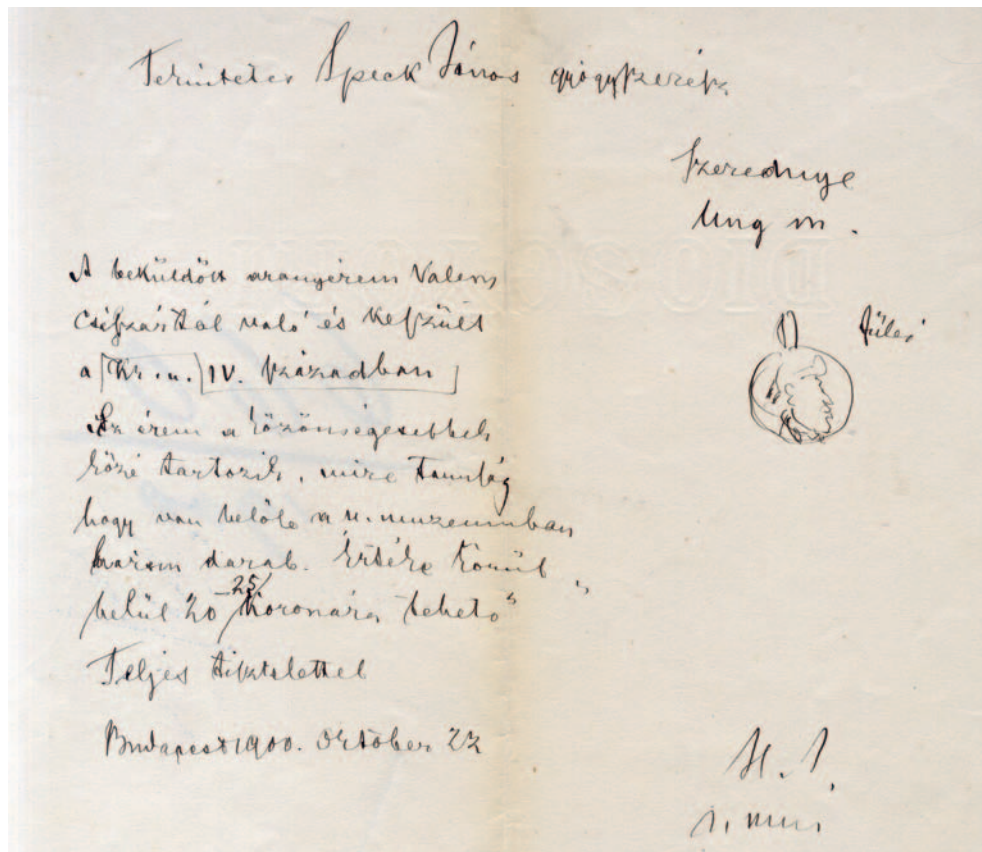 Tekintetes Speck János gyógyszerész
Szerednye
Ung m.
A beküldött aranyérem Valens
császártól való és készült
a (Kr. u.) IV. században
Az érem a közönségesebbek
közé tartozik, mire tanuság
hogy van belőle a n. muzeumban
három darab. Értéke körül
belül 20 -25 Koronára tehető"
Teljes tisztelettel
Budapest 1900. Október 22
füles